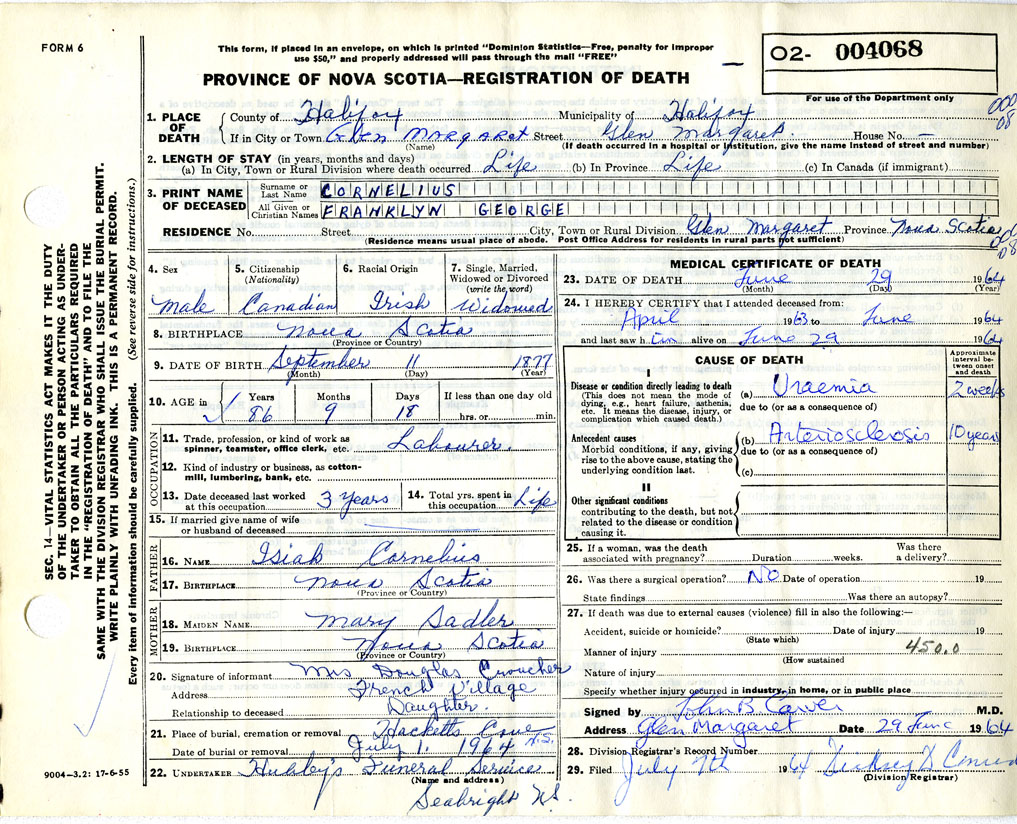 FORM 6
This form, if placed in an envelope, on which is printed "Dominion Statistics—Free, penalty for improper
use $50," and properly addressed will pass through the mail "FREE"
PROVINCE OF NOVA SCOTIA—REGISTRATION OF DEATH
02- 004068
For use of the Department only
000
08
1. PLACE OF DEATH County of Halifax Municipality of Halifax
If in City or Town GLEN MARGARET Street Glen Margaret House No. —
(Name) (If death occurred in a hospital or institution, give the name instead of street and number)
2. LENGTH OF STAY (in years, months and days)
(a) In City, Town or Rural Division where death occurred Life (b) In Province Life (c) In Canada (if immigrant)
3. PRINT NAME OF DECEASED Surname or Last Name CORNELIUS
All Given or Christian Names FRANKLYN GEORGE
RESIDENCE No. Street City, Town or Rural Division Glen Margaret Province Nova Scotia
(Residence means usual place of abode. Post Office Address for residents in rural parts not sufficient)
000
08
4. Sex 5. Citizenship (Nationality) 6. Racial Origin 7. Single, Married, Widowed or Divorced (write the word)
Male Canadian Irish Widowed
8. BIRTHPLACE Nova Scotia
(Province or Country)
9. DATE OF BIRTH September 11 1877
(Month) (Day) (Year)
10. AGE in Years Months Days If less than one day old
86 9 18 hrs. or min.
OCCUPATION
11. Trade, profession, or kind of work as
spinner, teamster, office clerk, etc. Labourer
12. Kind of industry or business, as cotton-
mill, lumbering, bank, etc.
13. Date deceased last worked at this occupation 3 years 14. Total yrs. spent in this occupation Life
15. If married give name of wife
or husband of deceased
FATHER
16. NAME Isiah Cornelius
17. BIRTHPLACE Nova Scotia
(Province or Country)
MOTHER
18. MAIDEN NAME Mary Sadler
19. BIRTHPLACE Nova Scotia
(Province or Country)
20. Signature of informant Mrs Douglas Croucher
Address French Village
Relationship to deceased Daughter
21. Place of burial, cremation or removal Hacketts Cove N.S.
Date of burial or removal July 1. 1964
22. UNDERTAKER Hubley's Funeral Service
(Name and address)
Seabright NS.
9004—3.2: 17-6-55
MEDICAL CERTIFICATE OF DEATH
23. DATE OF DEATH June 29 1964
(Month) (Day) (Year)
24. I HEREBY CERTIFY that I attended deceased from:
April 1963 to June 1964
and last saw him alive on June 29 1964
CAUSE OF DEATH
Approximate interval between onset and death
I
Disease or condition directly leading to death
(This does not mean the mode of
dying, e.g., heart failure, asthenia,
etc. It means the disease, injury, or
complication which caused death.)
(a) Uraemia 2 weeks
due to (or as a consequence of)
Antecedent causes
Morbid conditions, if any, giving
rise to the above cause, stating the
underlying condition last.
(b) Arteriosclerosis 10 years
due to (or as a consequence of)
(c)
II
Other significant conditions
contributing to the death, but not
related to the disease or condition
causing it.
25. If a woman, was the death Was there
associated with pregnancy? Duration weeks. a delivery?
26. Was there a surgical operation? NO Date of operation 19
State findings Was there an autopsy?
27. If death was due to external causes (violence) fill in also the following:—
Accident, suicide or homicide? Date of injury 19
(State which)
Manner of injury 450.0
(How sustained
Nature of injury
Specify whether injury occurred in industry, in home, or in public place
Signed by John B. Carver M.D.
Address Glen Margaret Date 29 June 1964
28. Division Registrar's Record Number
29. Filed July 7th 1964
(Division Registrar)
SEC. 14—VITAL STATISTICS ACT MAKES IT THE DUTY
OF THE UNDERTAKER OR PERSON ACTING AS UNDER-
TAKER TO OBTAIN ALL THE PARTICULARS REQUIRED
IN THE "REGISTRATION OF DEATH" AND TO FILE THE
SAME WITH THE DIVISION REGISTRAR WHO SHALL ISSUE THE BURIAL PERMIT.
WRITE PLAINLY WITH UNFADING INK. THIS IS A PERMANENT RECORD.
Every item of information should be carefully supplied. (See reverse side for instructions.)